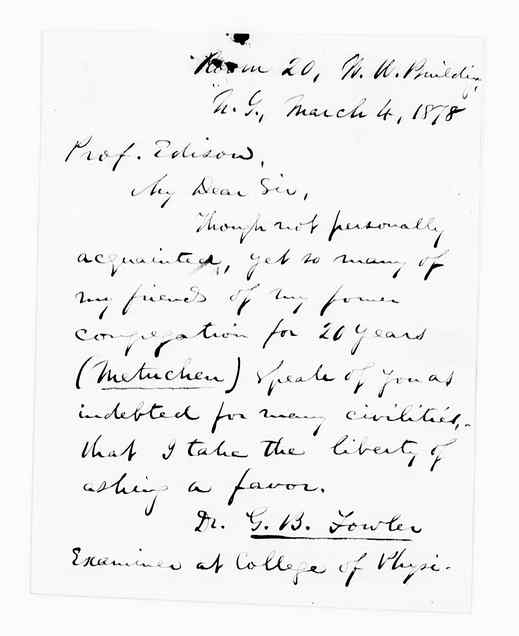 Room 20, W. U. Building
N.Y., March 4, 1878
Prof. Edison,
My Dear Sir,
Though not personally
acquainted, yet so many of
my friends of my former
congregation for 20 years
(Metuchen) speak of you as
indebted for many civilities,-
that I take the liberty of
asking a favor.
Dr. G. B. Fowler
Examiner at College of Physi-